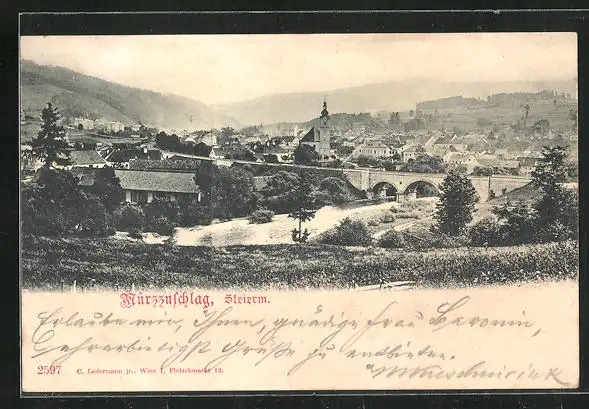 Mürzzuschlag, Steierm.
Erlaube mir, Ihnen, gnädige Frau Baronin,
Ehrerbietigst Grüße zu entbieten.
2597 C. Ledermann jr., Wien I, Fleischmarkt 12.